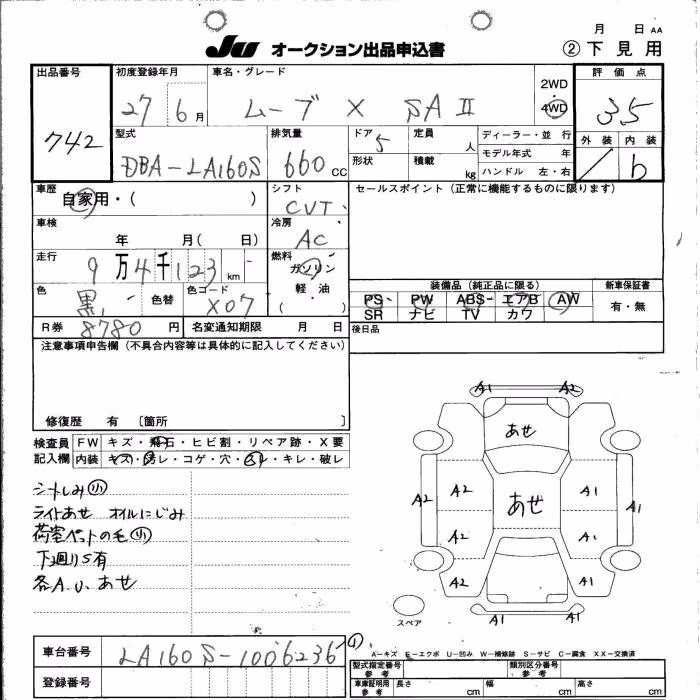 月 日 AA
JU オークション出品申込書
② 下見用
出品番号
742
初度登録年月
27 6月
車名・グレード
ムーブ X SA II
2WD
・
4WD
評価点
3.5
外装 内装
/ b
型式
DBA-LA160S
排気量
660 cc
ドア 5
形状
定員 人
積載 kg
ディーラー・並 行
モデル年式 年
ハンドル 左・右
車歴
自家用・( )
車検
年 月( 日)
走行
9万4千123 km
色
黒
色替
色コード
X07
シフト
CVT
冷房
AC
燃料
ガソリン
軽・油
( )
R券 8780 円
名変通知期限 月 日
セールスポイント(正常に機能するものに限ります)
装備品(純正品に限る)
新車保証書
PS PW ABS エアB AW
SR ナビ TV カワ
有・無
後日品
注意事項申告欄(不具合内容等は具体的に記入してください)
修復歴 有 〔箇所 〕
検査員
記入欄
FW キズ・飛石・ヒビ割・リペア跡・X要
内装 キズ・汚レ・コゲ・穴・スレ・キレ・破レ
シートしみ小
ライトあせ オイルにじみ
荷室ペットの毛小
下廻りS有
各A.U、あせ
A1 A2
あせ
A2 A2 あせ A1 A1
A2 A1
A2 A1
A1 A1
スペア
A-キズ E-エクボ U-凹み W-補修跡 S-サビ C-腐食 XX-交換済
車台番号
LA160S-1006236
登録番号
型式指定番号
参考
類別区分番号
参考
車庫証明用
参考
長さ cm 幅 cm 高さ cm